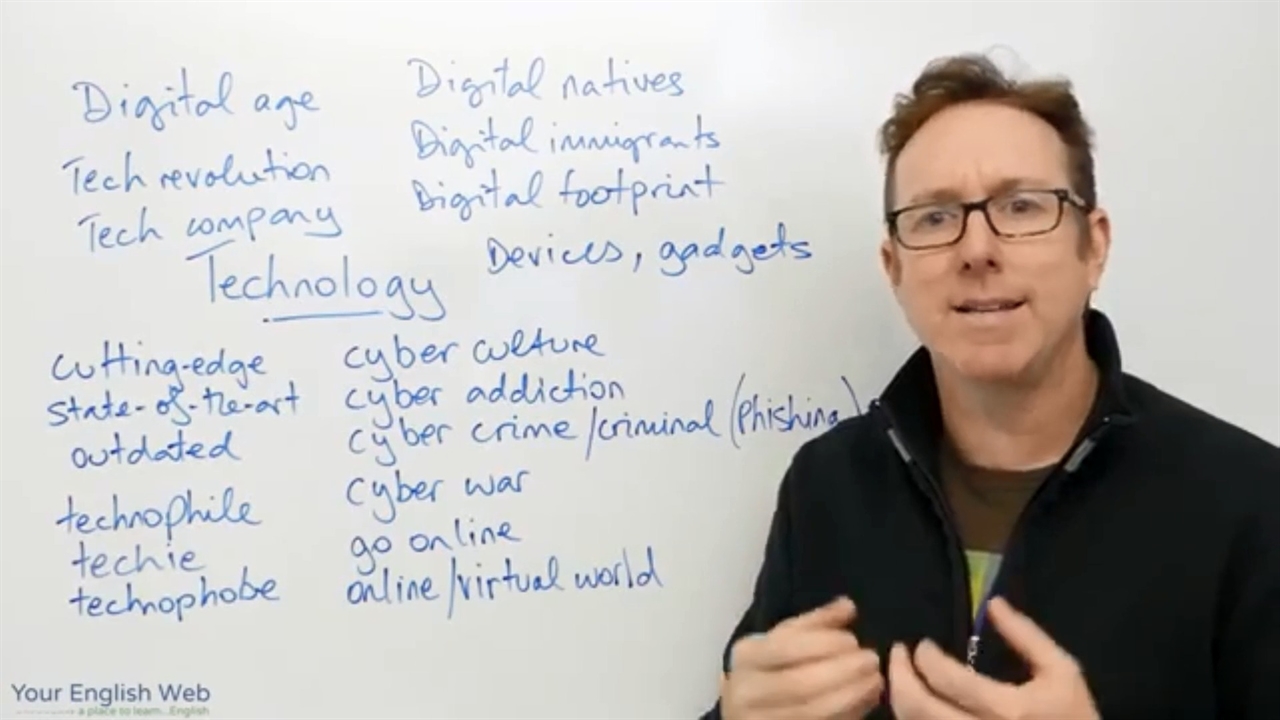 Digital age
Tech revolution
Tech company
Digital natives
Digital immigrants
Digital footprint
Devices, gadgets
Technology
cutting-edge
state-of-the-art
outdated
technophile
techie
technophobe
cyber culture
cyber addiction
cyber crime/criminal (Phishing)
cyber war
go online
online/virtual world
Your English Web
a place to learn...English